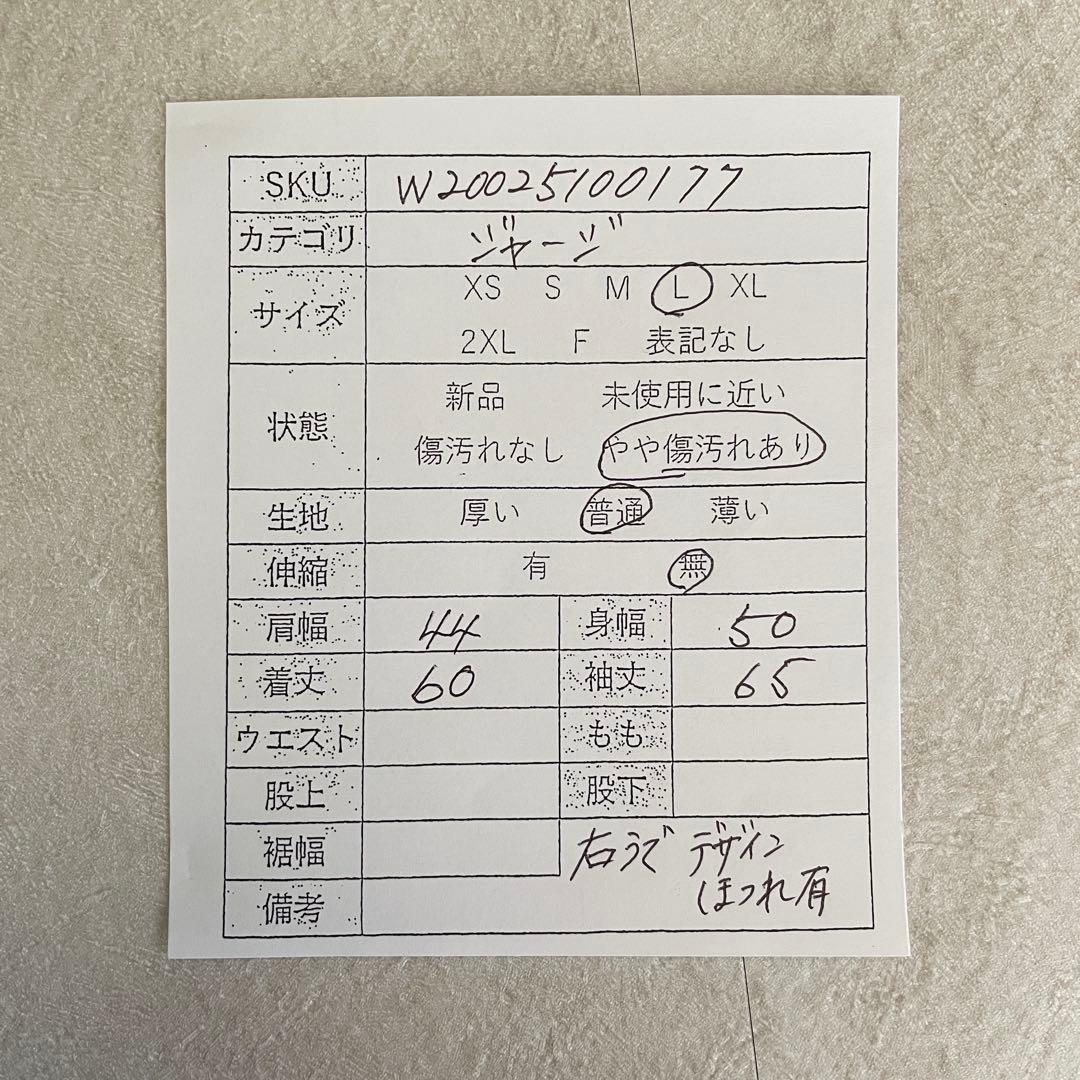 SKU W20025100177
カテゴリ ジャージ
サイズ XS S M L XL
2XL F 表記なし
状態 新品 未使用に近い
傷汚れなし やや傷汚れあり
生地 厚い 普通 薄い
伸縮 有 無
肩幅 44 身幅 50
着丈 60 袖丈 65
ウエスト もも
股上 股下
裾幅 右うで デザイン
ほつれ有
備考